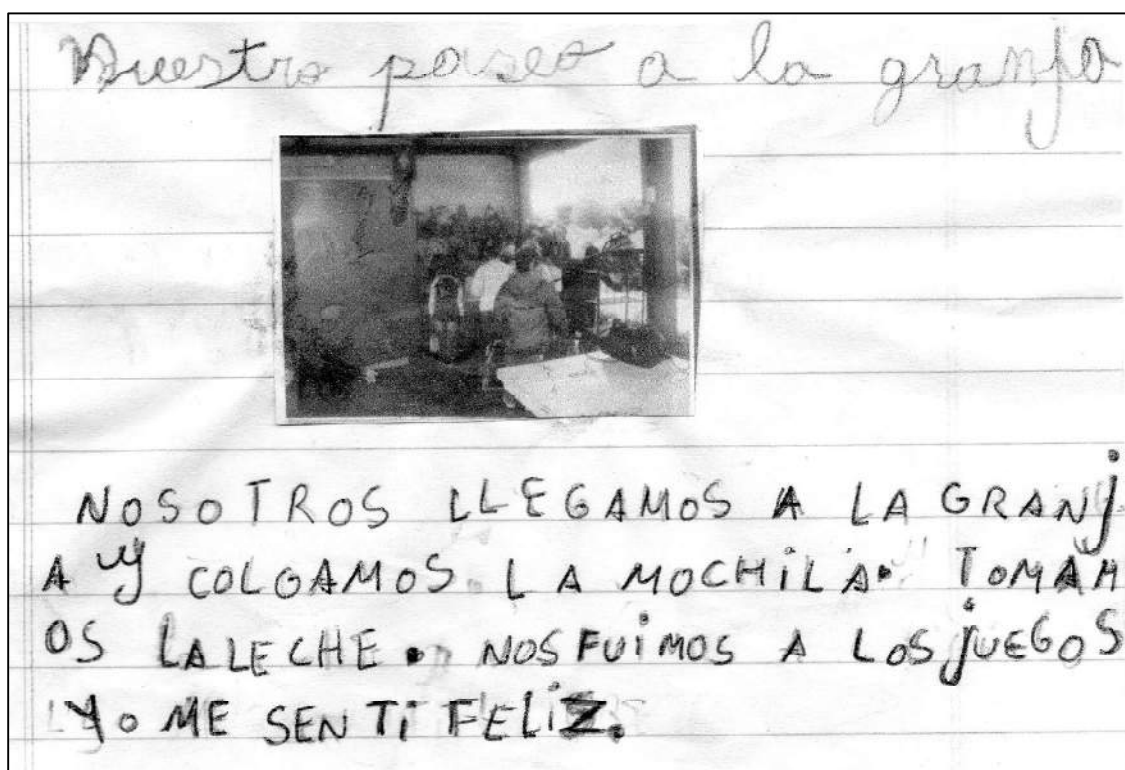 Nuestro paseo a la granja
NOSOTROS LLEGAMOS A LA GRANj
A y COLGAMOS LA MOCHiLA. TOMAM
OS LALECHE. NOS FUiMOS A LOS jUEGOS
Yo ME SENTi FELiZ.